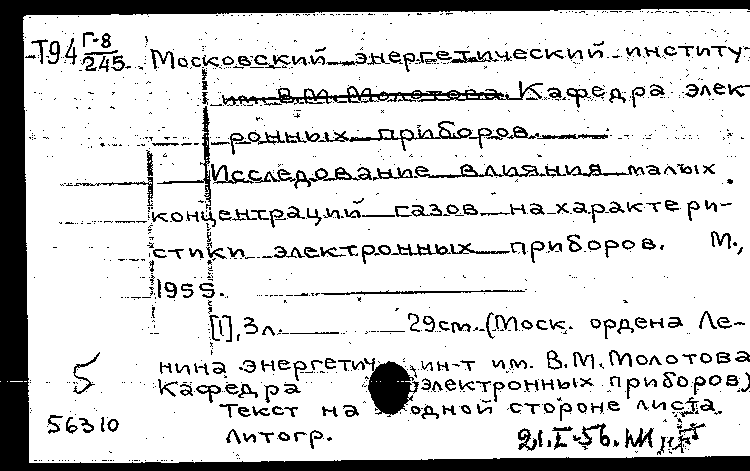 Т94 Г-8/245. Московский энергетический институ-
им. В.М. Молотова. Кафедра элек-
ронных приборов.
Исследование влияния малых
концентраций газов на характери-
стики электронных приборов. М.,
1955.
[1], 3 л. 29 см. (Моск. ордена Ле-
нина энергетич. ин-т им. В.М. Молотова
Кафедра электронных приборов)
Текст на одной стороне листа.
Литогр.
5
56310
21.I-56.